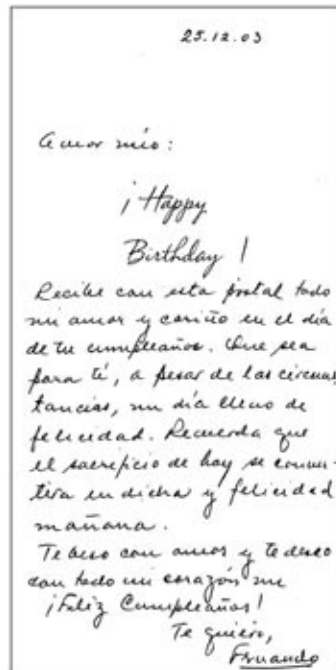 25.12.03
Amor mío:
¡Happy
Birthday!
Recibe con esta postal todo
mi amor y cariño en el día
de tu cumpleaños. Que sea
para tí, a pesar de las circuns
tancias, un día lleno de
felicidad. Recuerda que
el sacrificio de hoy se conver-
tira en dicha y felicidad
mañana.
Te beso con amor y te deseo
con todo mi corazón un
¡Feliz Cumpleaños!
Te quiero,
Fernando